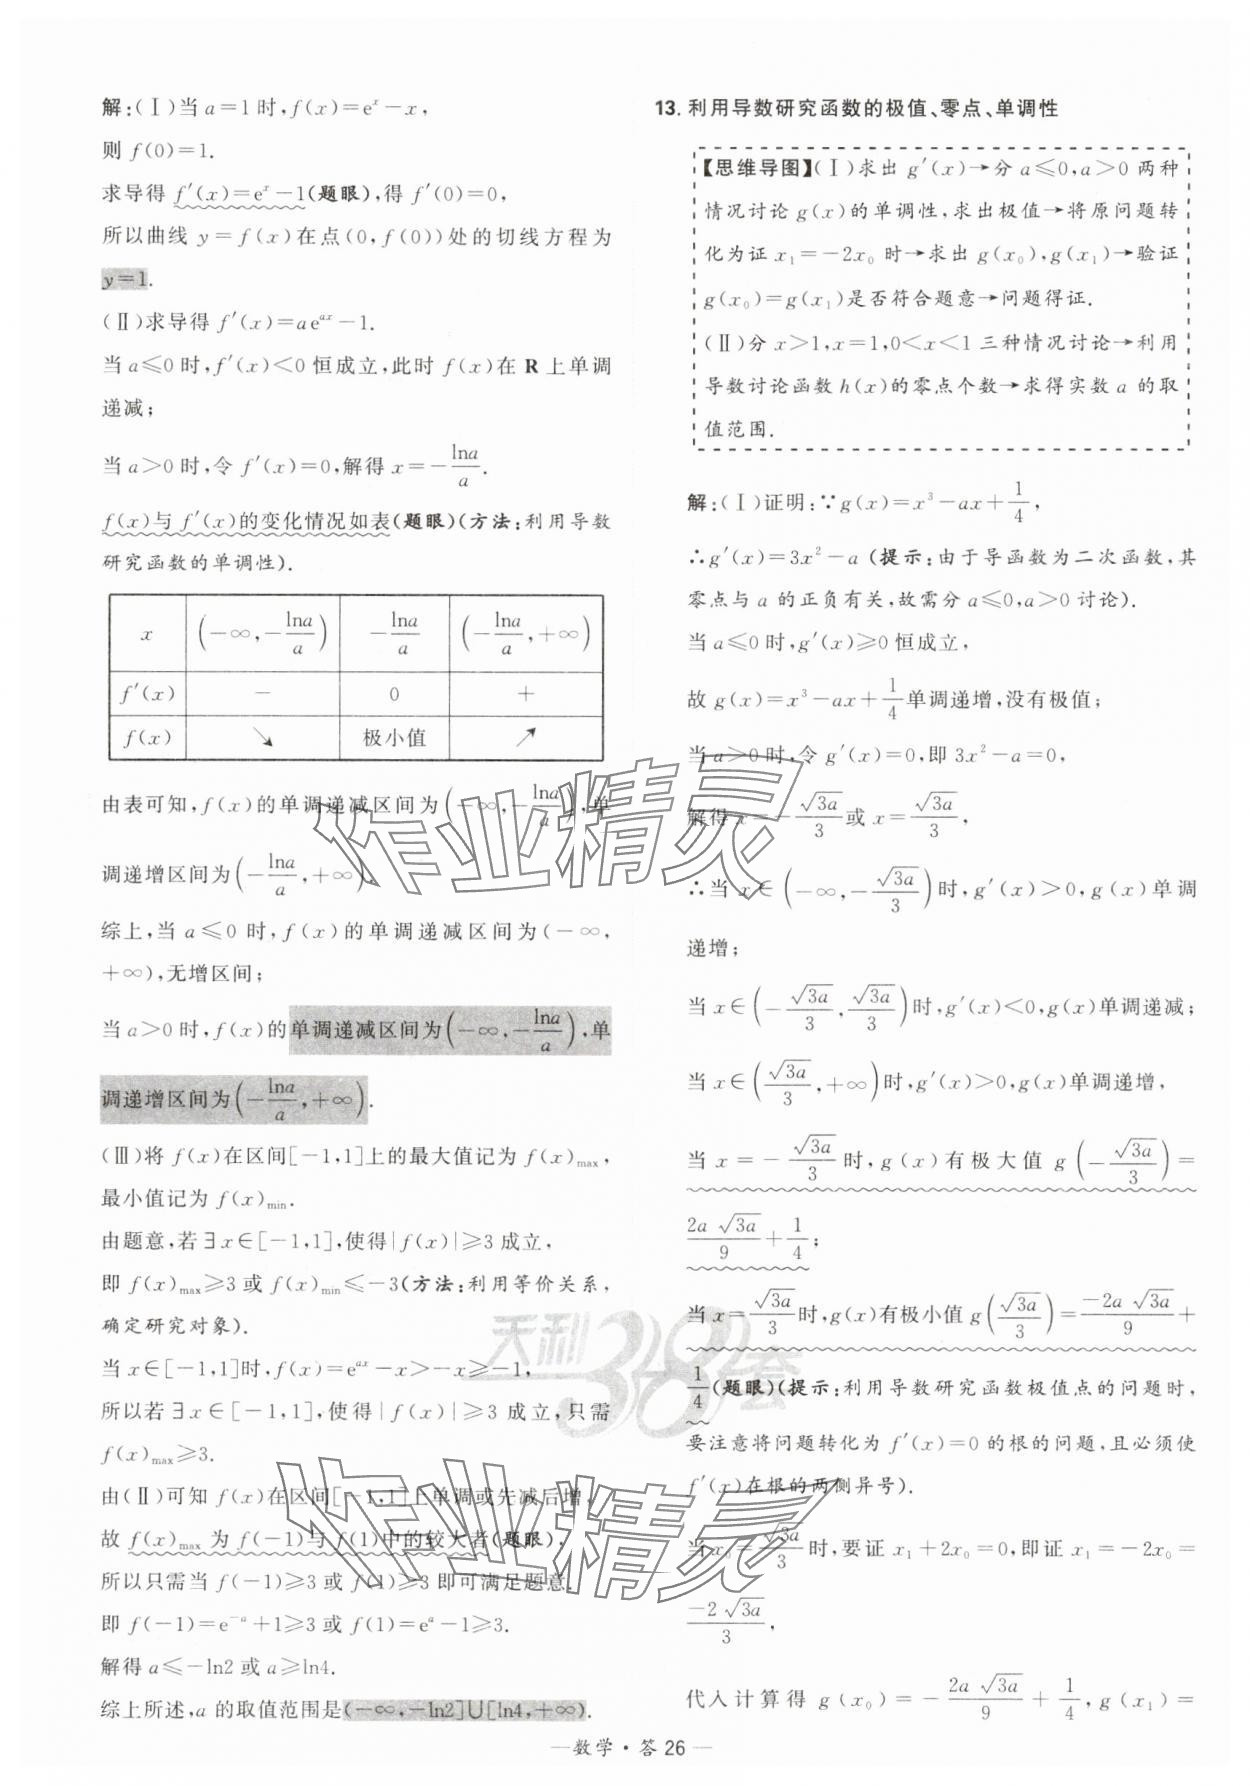 解:(Ⅰ)当 a=1 时,f(x)=eˣ-x,
则 f(0)=1.
求导得 f′(x)=eˣ-1(题眼),得 f′(0)=0,
所以曲线 y=f(x)在点(0,f(0))处的切线方程为
y=1.
(Ⅱ)求导得 f′(x)=aeᵃˣ-1.
当 a≤0 时,f′(x)<0 恒成立,此时 f(x)在 R 上单调
递减;
当 a>0 时,令 f′(x)=0,解得 x=-lna/a.
f(x)与 f′(x)的变化情况如表(题眼)(方法:利用导数
研究函数的单调性).
x (-∞,-lna/a) -lna/a (-lna/a,+∞)
f′(x) - 0 +
f(x) ↘ 极小值 ↗
由表可知,f(x)的单调递减区间为(-∞,-lna/a),单
调递增区间为(-lna/a,+∞).
综上,当 a≤0 时,f(x)的单调递减区间为(-∞,
+∞),无增区间;
当 a>0 时,f(x)的单调递减区间为(-∞,-lna/a),单
调递增区间为(-lna/a,+∞).
(Ⅲ)将 f(x)在区间[-1,1]上的最大值记为 f(x)max,
最小值记为 f(x)min.
由题意,若∃x∈[-1,1],使得|f(x)|≥3 成立,
即 f(x)max≥3 或 f(x)min≤-3(方法:利用等价关系,
确定研究对象).
当 x∈[-1,1]时,f(x)=eᵃˣ-x>-x≥-1,
所以若∃x∈[-1,1],使得|f(x)|≥3 成立,只需
f(x)max≥3.
由(Ⅱ)可知 f(x)在区间[-1,1]上单调或先减后增,
故 f(x)max 为 f(-1)与 f(1)中的较大者(题眼),
所以只需当 f(-1)≥3 或 f(1)≥3 即可满足题意.
即 f(-1)=e⁻ᵃ+1≥3 或 f(1)=eᵃ-1≥3.
解得 a≤-ln2 或 a≥ln4.
综上所述,a 的取值范围是(-∞,-ln2]∪[ln4,+∞).
13. 利用导数研究函数的极值、零点、单调性
【思维导图】(Ⅰ)求出 g′(x)→分 a≤0,a>0 两种
情况讨论 g(x)的单调性,求出极值→将原问题转
化为证 x₁=-2x₀ 时→求出 g(x₀),g(x₁)→验证
g(x₀)=g(x₁)是否符合题意→问题得证.
(Ⅱ)分 x>1,x=1,0<x<1 三种情况讨论→利用
导数讨论函数 h(x)的零点个数→求得实数 a 的取
值范围.
解:(Ⅰ)证明:∵g(x)=x³-ax+1/4,
∴g′(x)=3x²-a (提示:由于导函数为二次函数,其
零点与 a 的正负有关,故需分 a≤0,a>0 讨论).
当 a≤0 时,g′(x)≥0 恒成立,
故 g(x)=x³-ax+1/4单调递增,没有极值;
当 a>0 时,令 g′(x)=0,即 3x²-a=0,
解得 x=-√3a/3或 x=√3a/3,
∴当 x∈(-∞,-√3a/3)时,g′(x)>0,g(x)单调
递增;
当 x∈(-√3a/3,√3a/3)时,g′(x)<0,g(x)单调递减;
当 x∈(√3a/3,+∞)时,g′(x)>0,g(x)单调递增,
当 x=-√3a/3时,g(x)有极大值 g(-√3a/3)=
2a√3a/9+1/4;
当 x=√3a/3时,g(x)有极小值 g(√3a/3)=-2a√3a/9+
1/4(题眼)(提示:利用导数研究函数极值点的问题时,
要注意将问题转化为 f′(x)=0 的根的问题,且必须使
f′(x)在根的两侧异号).
当 x₀=√3a/3时,要证 x₁+2x₀=0,即证 x₁=-2x₀=
-2√3a/3,
代入计算得 g(x₀)=-2a√3a/9+1/4,g(x₁)=
作业精灵
天利38套
作业精灵
—数学·答26—